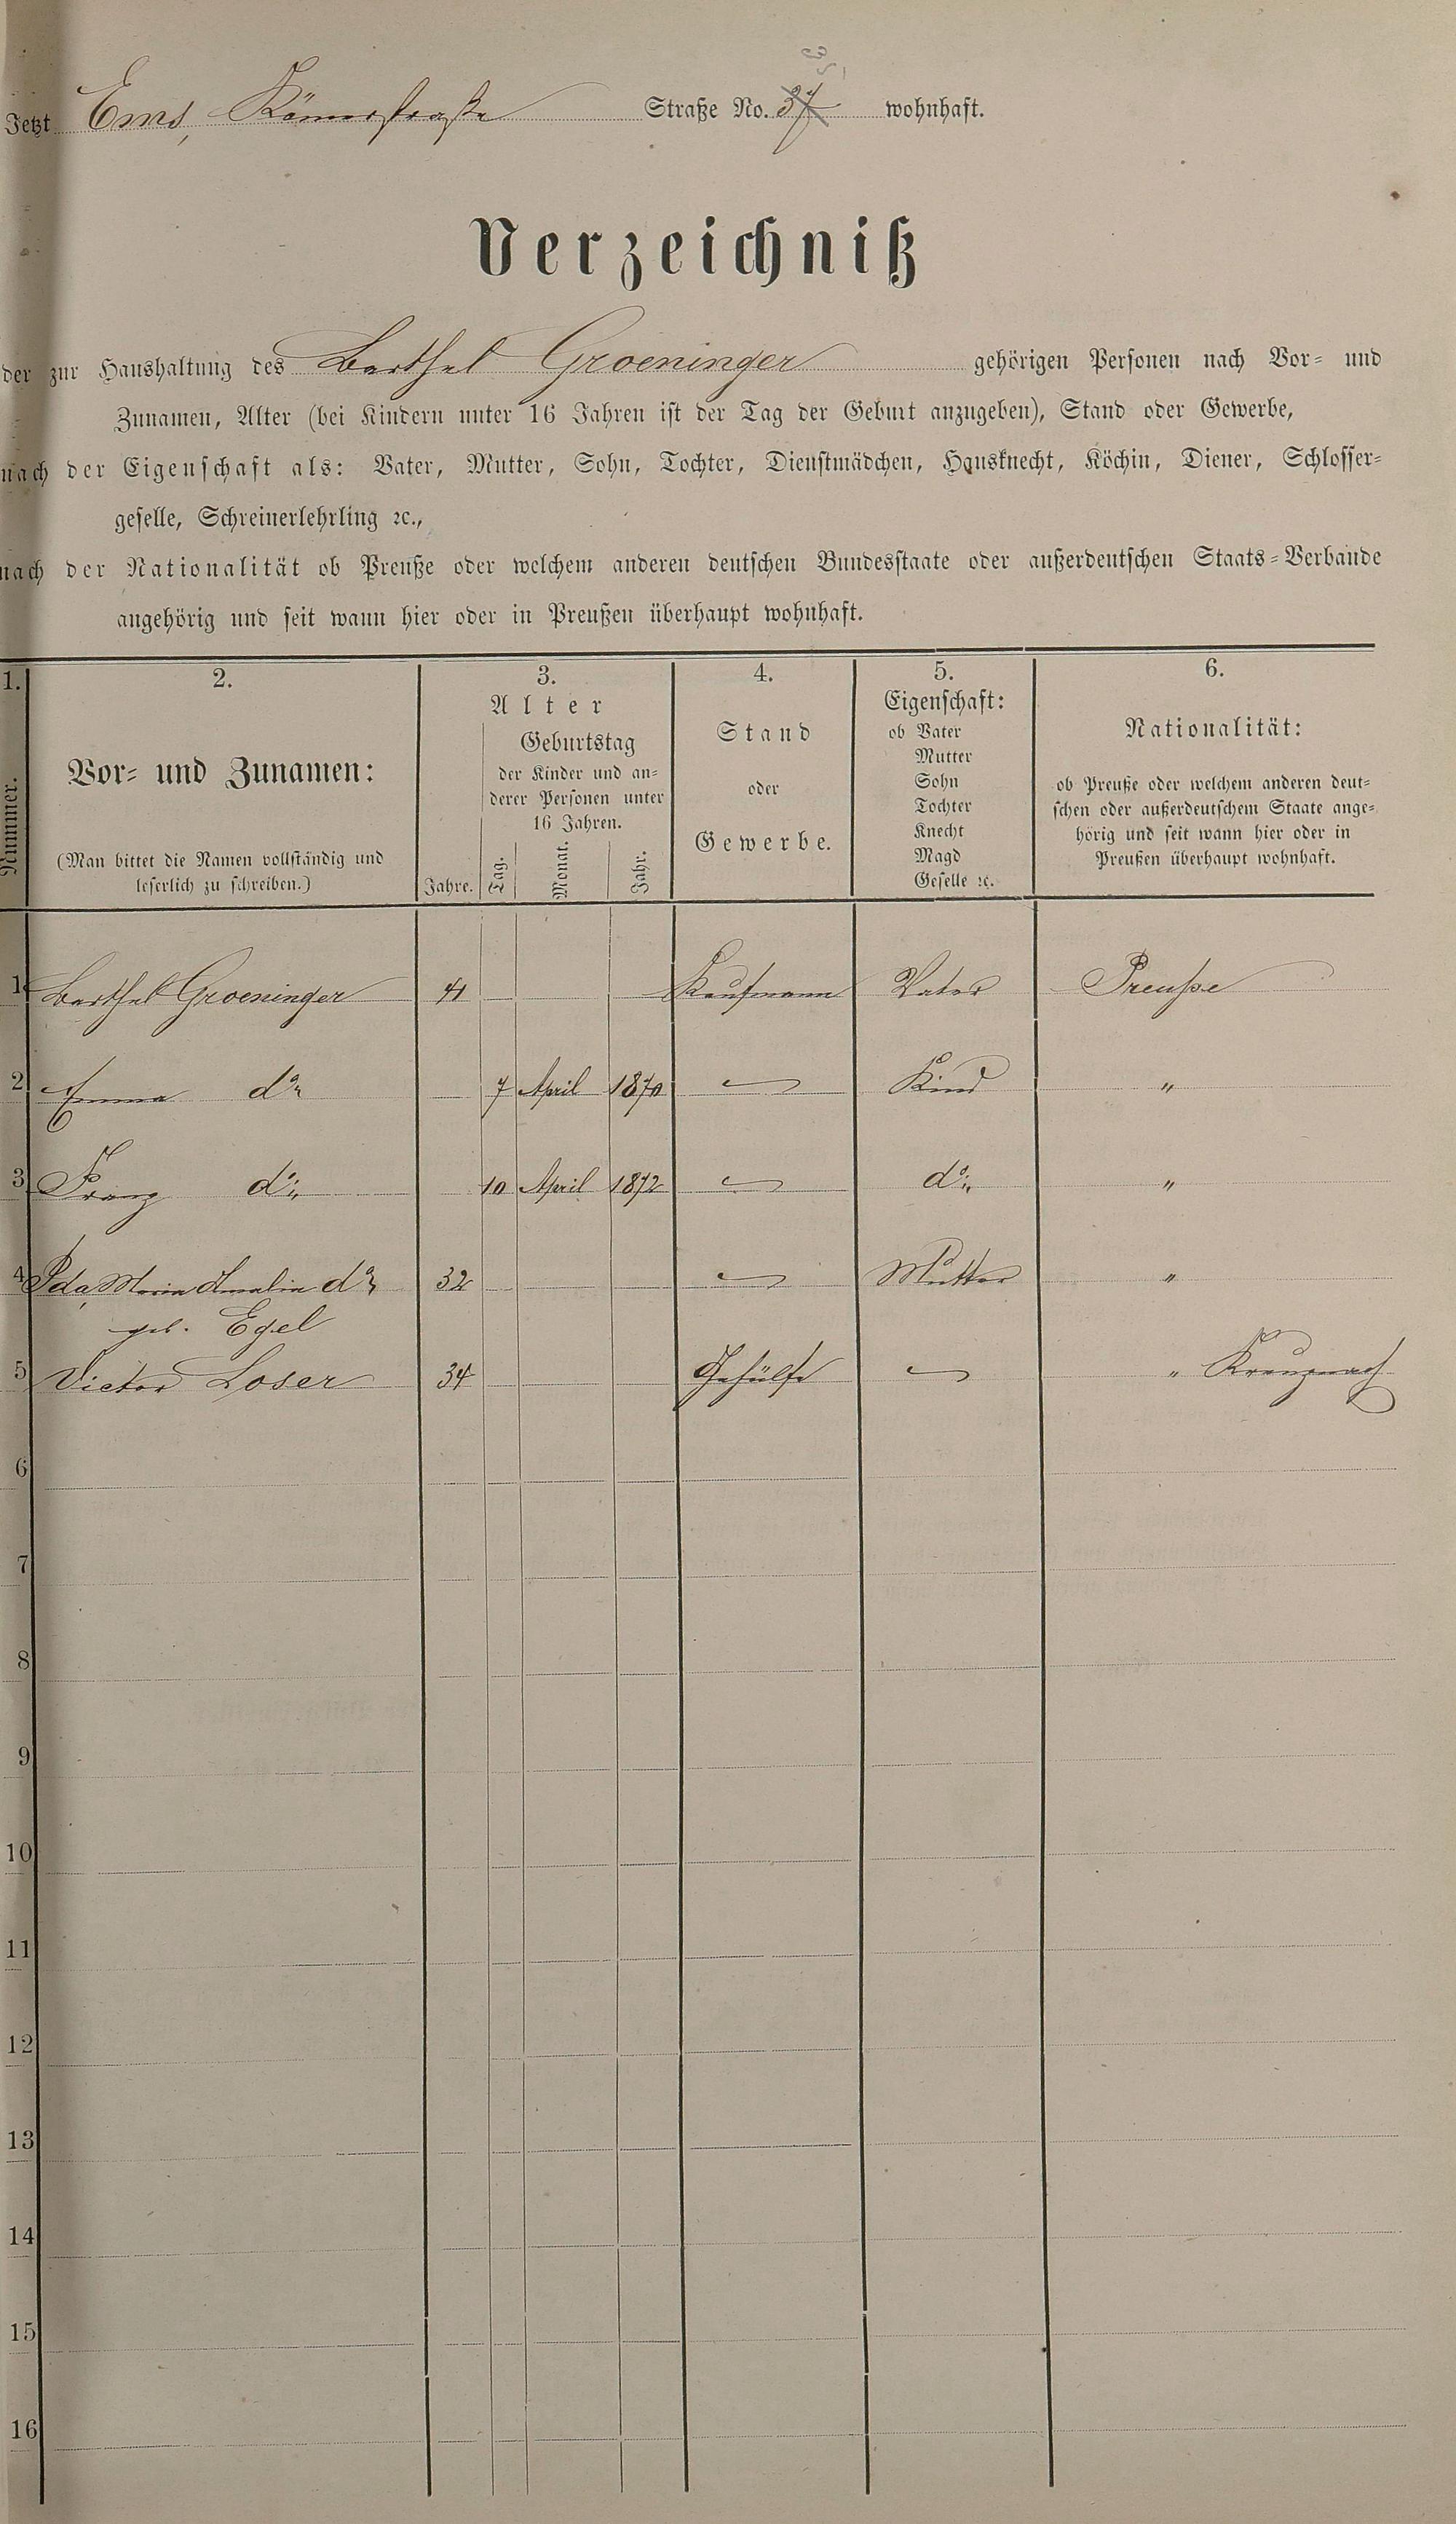 Jetzt Ems, Römerstraße Straße No. 37 wohnhaft.
Verzeichniß
der zur Haushaltung des Barthel Groeninger gehörigen Personen nach Vor- und
Zunamen, Alter (bei Kindern unter 16 Jahren ist der Tag der Geburt anzugeben), Stand oder Gewerbe,
nach der Eigenschaft als: Vater, Mutter, Sohn, Tochter, Dienstmädchen, Hausknecht, Köchin, Diener, Schlosser-
geselle, Schreinerlehrling ꝛc.,
nach der Nationalität ob Preuße oder welchem anderen deutschen Bundesstaate oder außerdeutschen Staats-Verbande
angehörig und seit wann hier oder in Preußen überhaupt wohnhaft.
1. 2. 3. 4. 5. 6.
Nummer.
Vor- und Zunamen:
(Man bittet die Namen vollständig und
leserlich zu schreiben.)
Alter
Jahre.
Geburtstag
der Kinder und an-
derer Personen unter
16 Jahren.
Tag. Monat. Jahr.
Stand
oder
Gewerbe.
Eigenschaft:
ob Vater
Mutter
Sohn
Tochter
Knecht
Magd
Geselle ꝛc.
Nationalität:
ob Preuße oder welchem anderen deut-
schen oder außerdeutschem Staate ange-
hörig und seit wann hier oder in
Preußen überhaupt wohnhaft.
1 Barthel Groeninger 41 Kaufmann Vater Preuße
2 Emma do 7 April 1870 Kind "
3 Franz do 10 April 1872 do "
4 Ida, Maria Amalia do 32 Mutter "
geb. Egel
5 Victor Loser 34 Gehülfe " Kreuznach
6
7
8
9
10
11
12
13
14
15
16